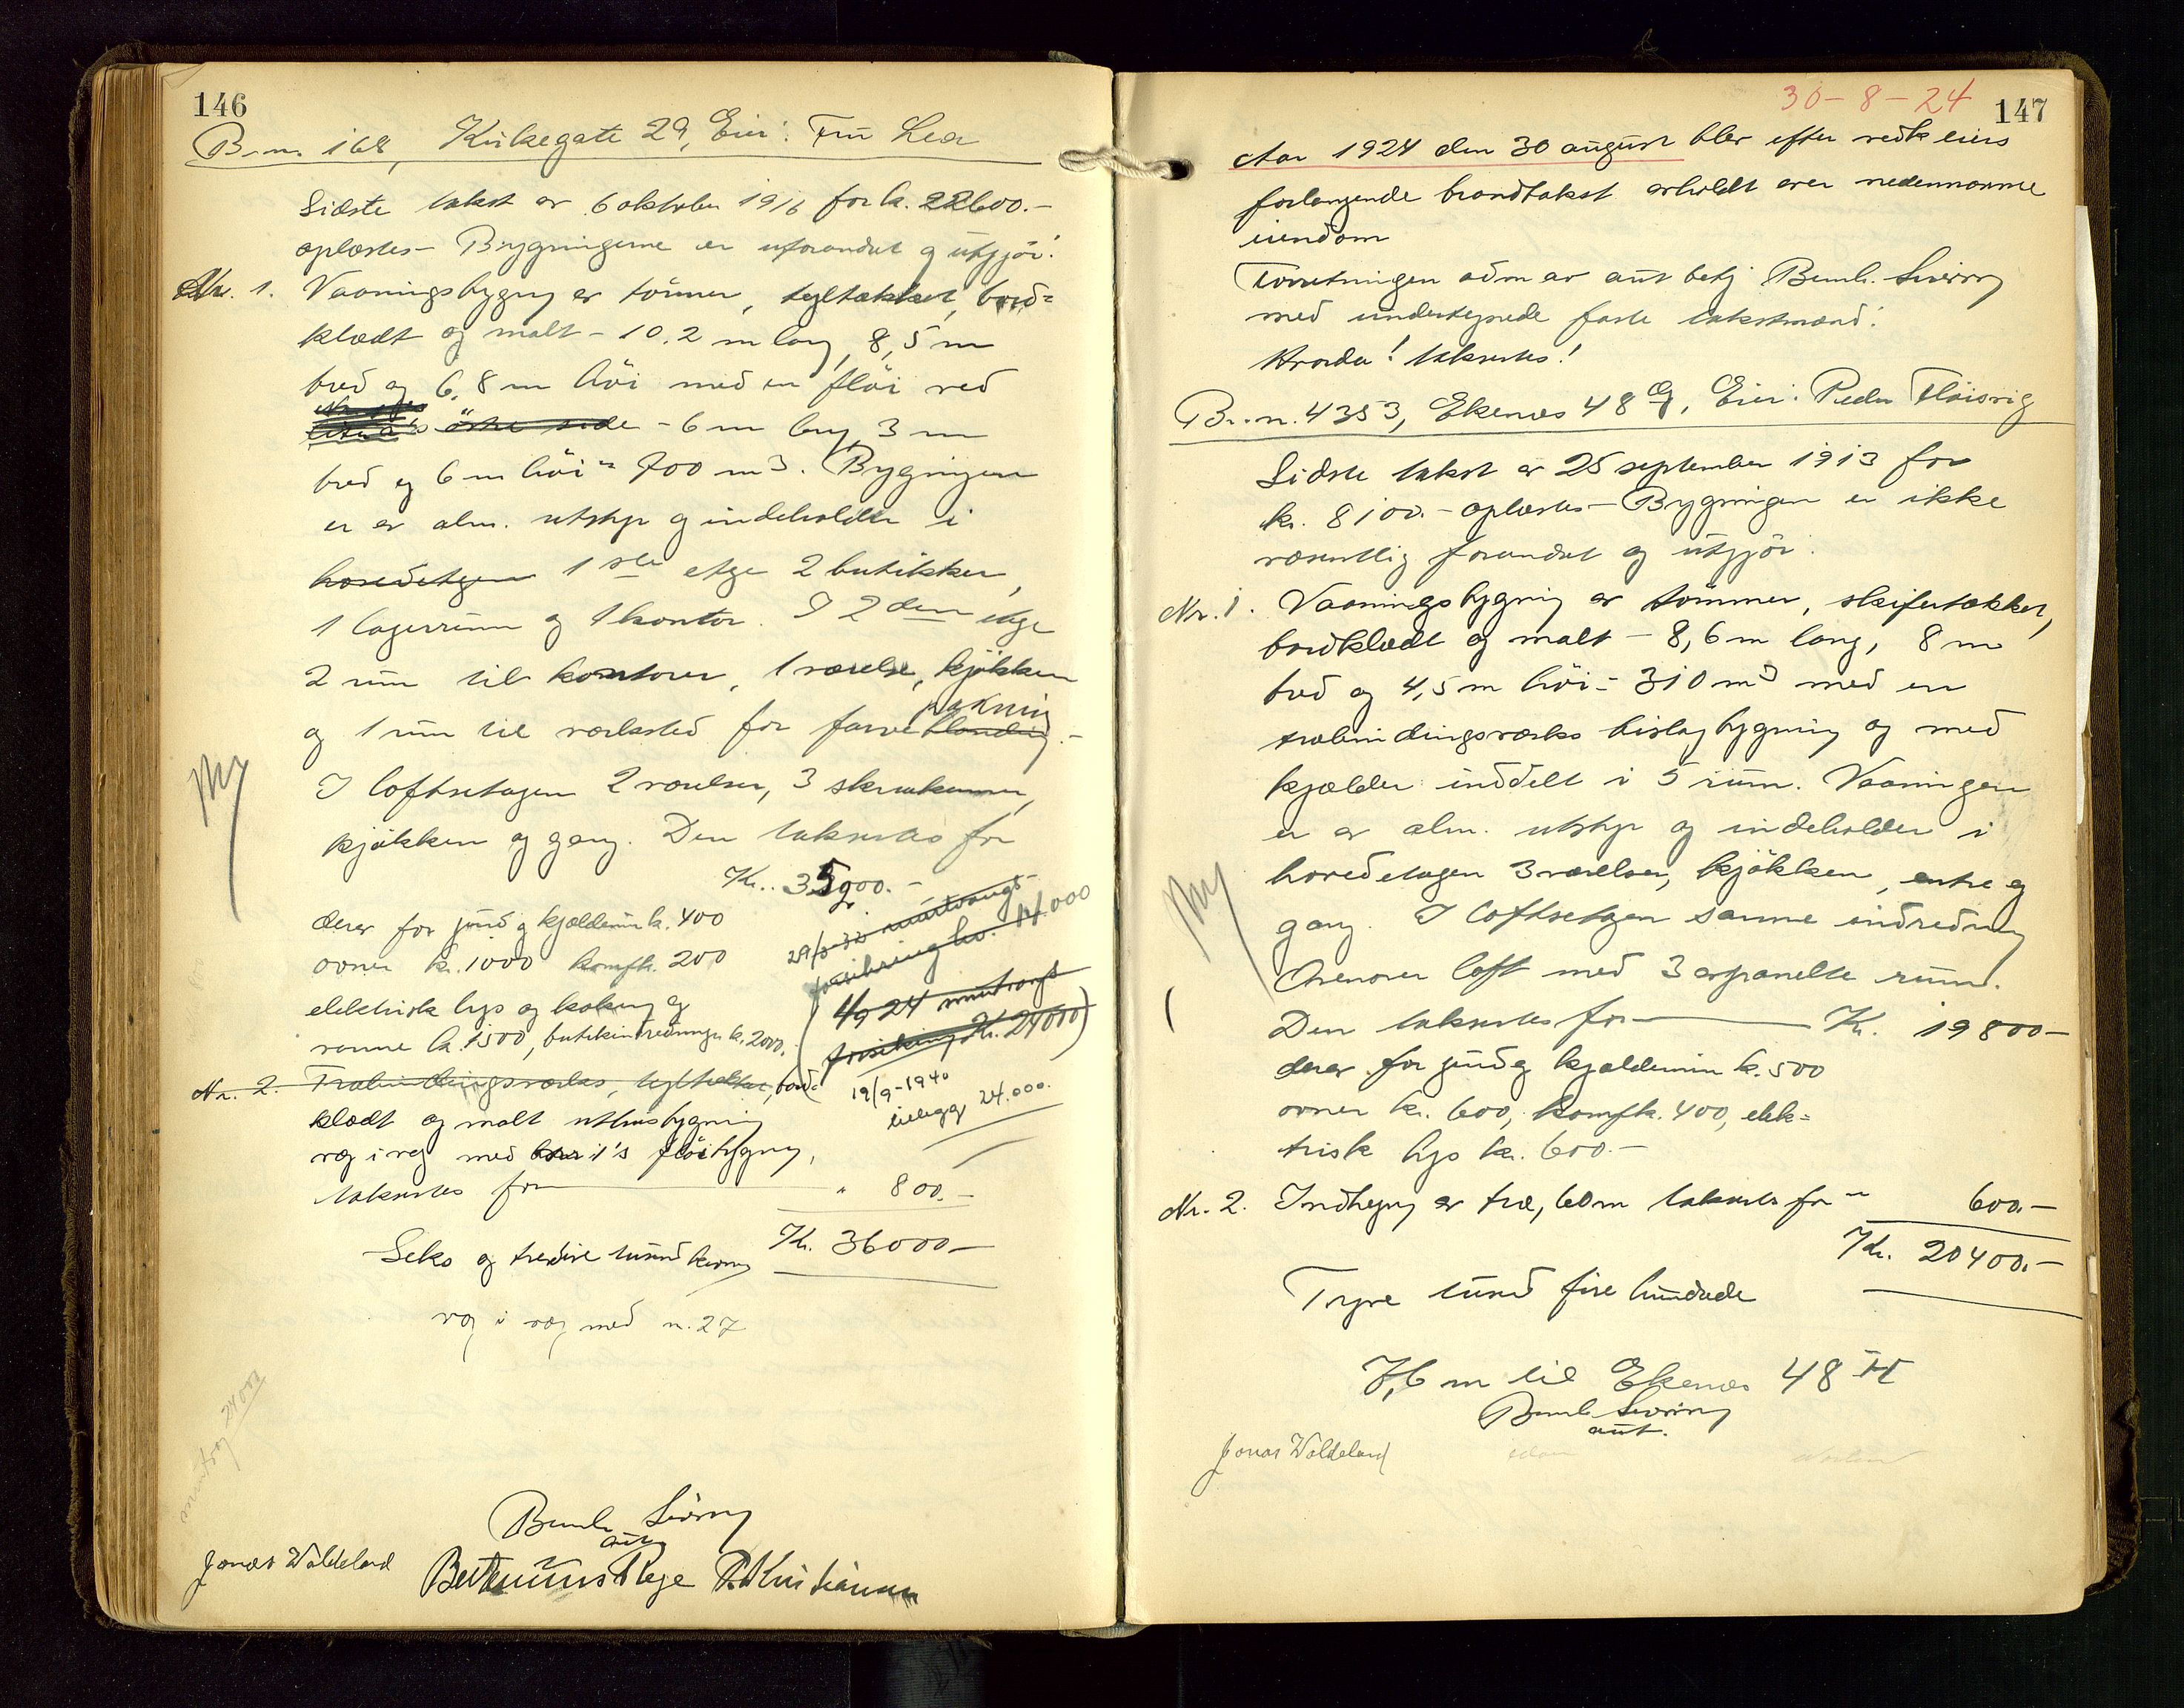 146
B.n. 168, Kirkegate 29, Eier: Fru Lea
Sidste takst er 6 oktober 1916 for kr. 22600.-
oplæstes - Bygningerne er uforandret og utgjör:
Nr. 1. Vaaningsbygng er tömmer, tegltækket, bord=
klædt og malt - 10,2 m lang, 8,5 m
bred og 6,8 m höi med en flöi ved
östre side - 6 m lang, 3 m
bred og 6 m höi = 700 m3. Bygningen
er av alm. utstyr og indeholder i
hovedetgen 1ste etge 2 butikker,
1 lagerrum og 1 kontor. I 2den etge
2 rum til kontorer, 1 værelse, kjökken
og 1 rum til verksted for farve blanding.- pakning
I loftsetagen 2 værelser, 3 skraakammer,
kjökken og gang. Den takseres for
Kr. 35200.-
derav for grund og kjeldermur kr. 400
ovner kr. 1000 komfr. 200
elektrisk lys og kokeng og
varme kr. 1500, butikindredninger kr. 2000.
29/3-33 merutvungs-
forsikring kr. 14.000
(4/9 24 merutvungt
forsikring Kr. 24000)
19/9-1940
tillegg 24.000.
Nr. 2. Træbindingsverks, tegltækket, bord=
klædt og malt uthusbygning
væg i væg med flöibygng,
takseres for " 800.-
Kr. 36000-
Seks og tredive tusend kroner
væg i væg med n. 27
Bernh. Sivering
aut
Jonas Waldeland Berthinius Rege P. Kristiansen
30-8-24
147
Aar 1924 den 30 august blev efter vedk eiers
forlangende brandtakst avholdt over nedennævnte
eiendom
Forretningen adm av aut betj Bernh. Sivering
med undertegnede faste takstmænd:
Hvorda! takseres!
Br.n. 4353, Ekenæs 48 G, Eier: Peder Flöisvig
Sidste takst er 25 september 1913 for
kr. 8100.- oplæstes - Bygningen er ikke
væsentlig forandret og utgjör:
Nr. 1. Vaaningsbygning er tömmer, skifertækket,
bordklædt og malt - 8,6 m lang, 8 m
bred og 4,5 m höi = 310 m3 med en
træbindingsverks bislagbygning og med
kjælder inddelt i 5 rum. Vaaningen
er av alm. utstyr og indeholder i
hovedetagen 3 værelser, kjökken, entre og
gang. I loftsetgen samme indredning
Ovenover loft med 3 avpanelte rum.
Den takseres for Kr. 19800-
derav for grund og kjeldermur kr. 500
ovner kr. 600, komfr. 400, elek=
trisk lys kr. 600.-
Nr. 2. Indhegng av træ, 60 m takseres for " 600.-
Kr. 20400.-
Tyve tusend fire hundrede
7,6 m til Ekenæs 48 H
Bernh Sivering
aut.
Jonas Waldeland